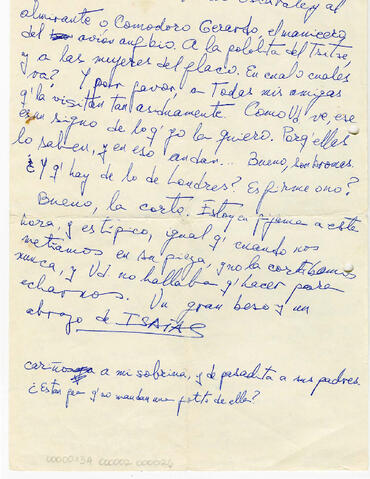 al
almirante o Comodoro Gerardo, el manicero
del avión anfibio. A la polola del
y a las mujeres del flaco. En cual o cuales
va? Y por favor, a Todas mis amigas
q' la visitan tan asiduamente. Como Ud ve, ese
es un signo de lo q' yo la quiero. Porq' ellas
lo saben, y en eso andan... Bueno, son bromas.
¿Y q' hay de lo de Londres? Es firme o no?
Bueno, la corto. Estoy en pijama a esta
hora, y es típico, igual q' cuando nos
metíamos en su pieza, y no la cortábamos
nunca, y Ud no hallaba q' hacer para
echarnos. Un gran beso y un
abrazo de ISAIAS
cariños a mi sobrina, y de pasadita a sus padres.
q' no mandan una fotito de ella?
0000134 000002 000024